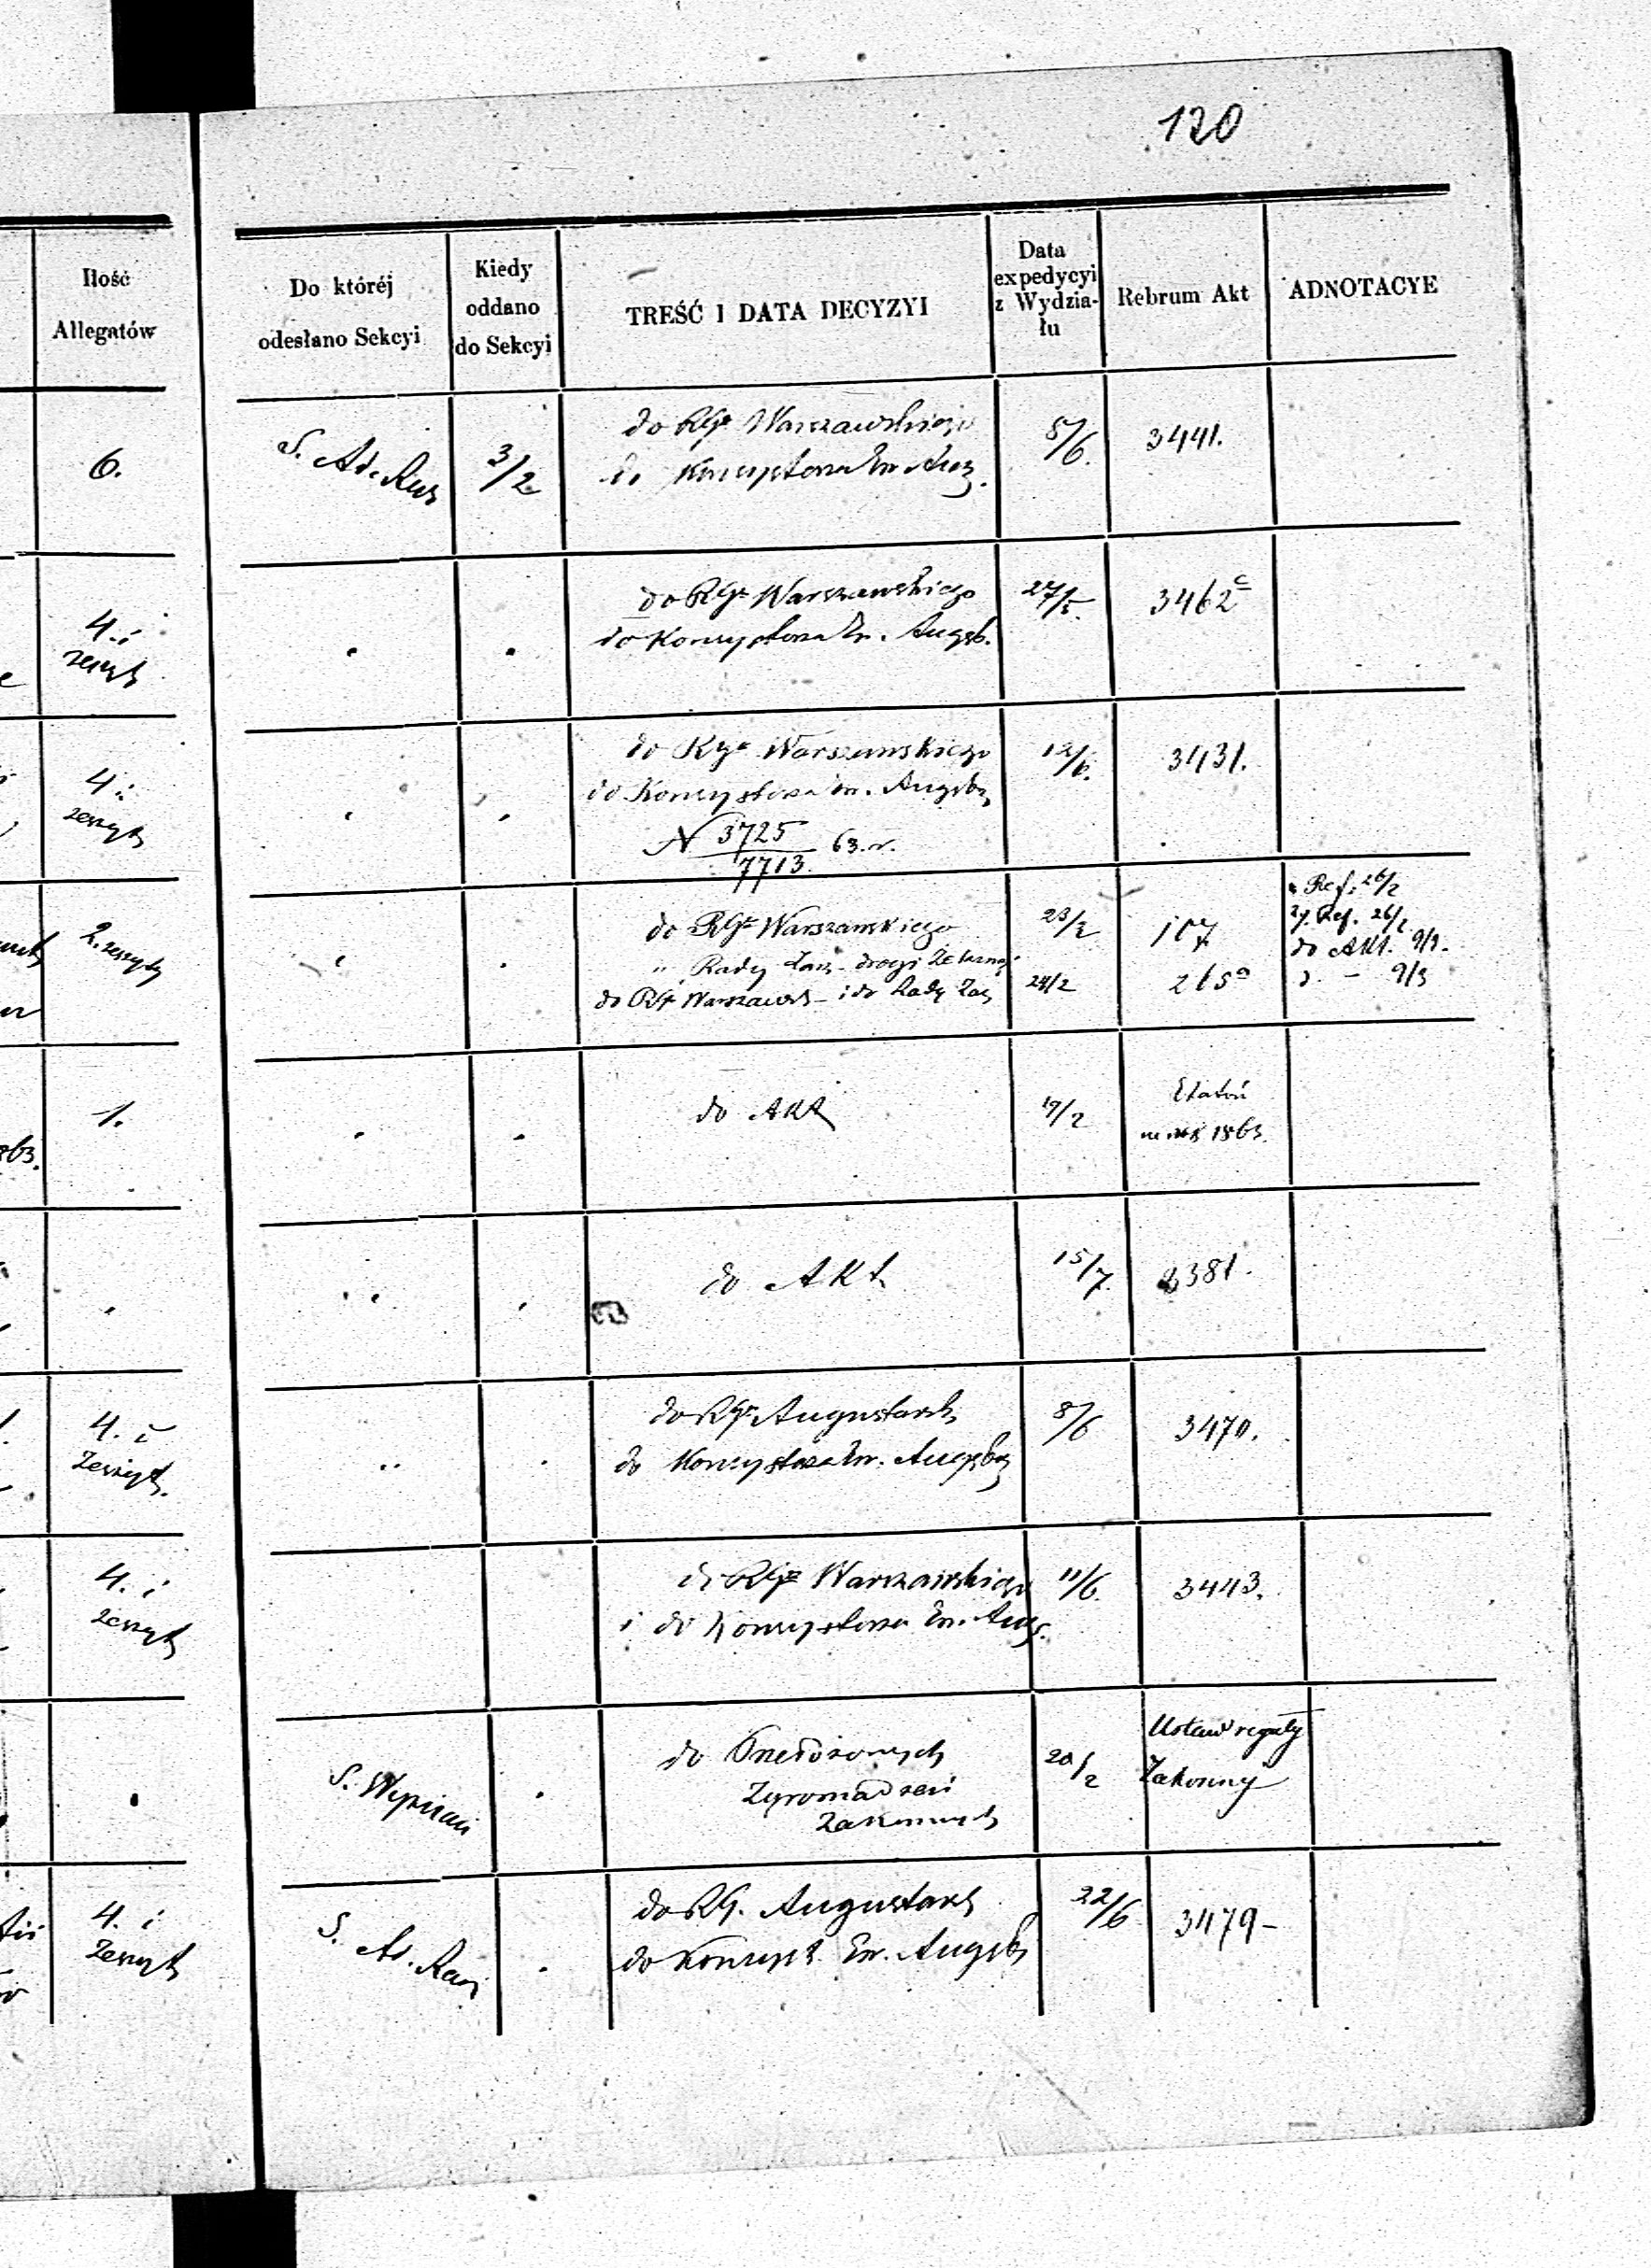 120
Ilość
Allegatów
Do któréj
odesłano Sekcyi
Kiedy
oddano
do Sekcyi
TREŚĆ I DATA DECYZYI
Data
expedycyi
z Wydzia-
łu
Rebrum Akt
ADNOTACYE
6.
S. Ad.
3/2
do RGu Warszawskiego
do Konsystorza Ew. Aug.
8/6.
3441.
4. i
zeszyt
do RGu Warszawskiego
do Konsystorza Ew. Augsb.
27/5.
3462c
4. i
zeszyt
do RGu Warszawskiego
do Konsystorza Ew. Augsb.
N 3725/7713 63. r.
12/6.
3431.
2. zeszyty
do RGu Warszawskiego
" Rady Zarz. drogi Żelaznej
do RGu Warszaws- i do Rady Zarz
23/2
24/2
107
215a
Ref. 26/2
2g. Ref. 26/2
do Akt. 9/3.
d. - 9/3
863.
1.
do Akt
19/2
Etatów
1863.
do Akt
15/7.
2381.
4. i
Zeszyt.
do RGu Augustowsk
do Konsystorza Ew. Augsbg
8/6
3470.
4. i
zeszyt
do RGu Warszawskiego
i do Konsystorza Ew. Augs.
11/6.
3443.
S. Wyznań
do Przełożonych
Zgromadzeń
Zakonnych
20/2
Ustaw reguły
Zakonny
4. i
Zeszyt
S. Ad.
do RG. Augustows
do Konsyst Ew. Augsb
22/6
3479-